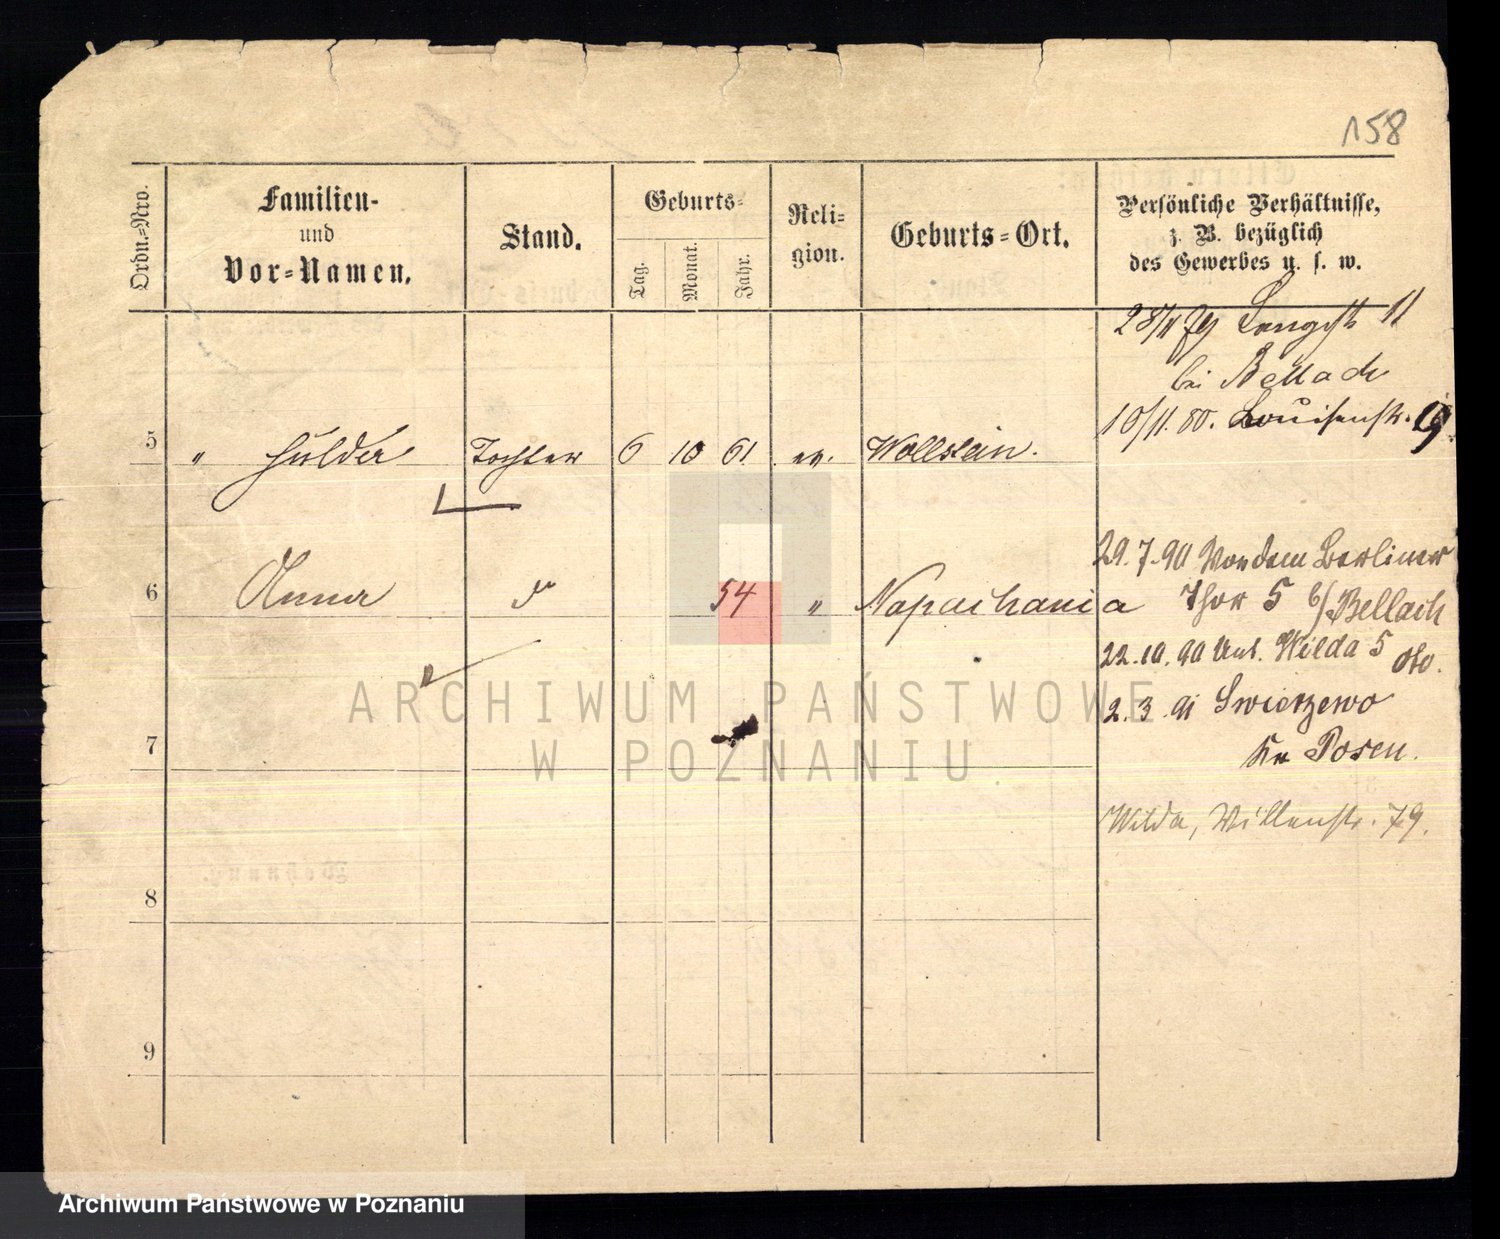 158
Ordn.-Nro.
Familien-
und
Vor-Namen.
Stand.
Geburts-
Tag.
Monat.
Jahr.
Reli-
gion.
Geburts-Ort.
Persönliche Verhältnisse,
z. B. bezüglich
des Gewerbes u. s. w.
28/11 79 Langestr 11
bei Bellach
10/11. 80. Louisenstr. 19.
5 " Hulda Tochter 6 10 61 ev. Wollstein.
29.7.90 Vor dem Berliner
6 Anna 54 " Napachania Thor 5 b/ Bellach
22.10.90 Unt. Wilda 5
2.3.91 Swierzewo
Kr Posen.
7
Wilda, Villenstr. 79.
8
9
ARCHIWUM PAŃSTWOWE
W POZNANIU
Archiwum Państwowe w Poznaniu